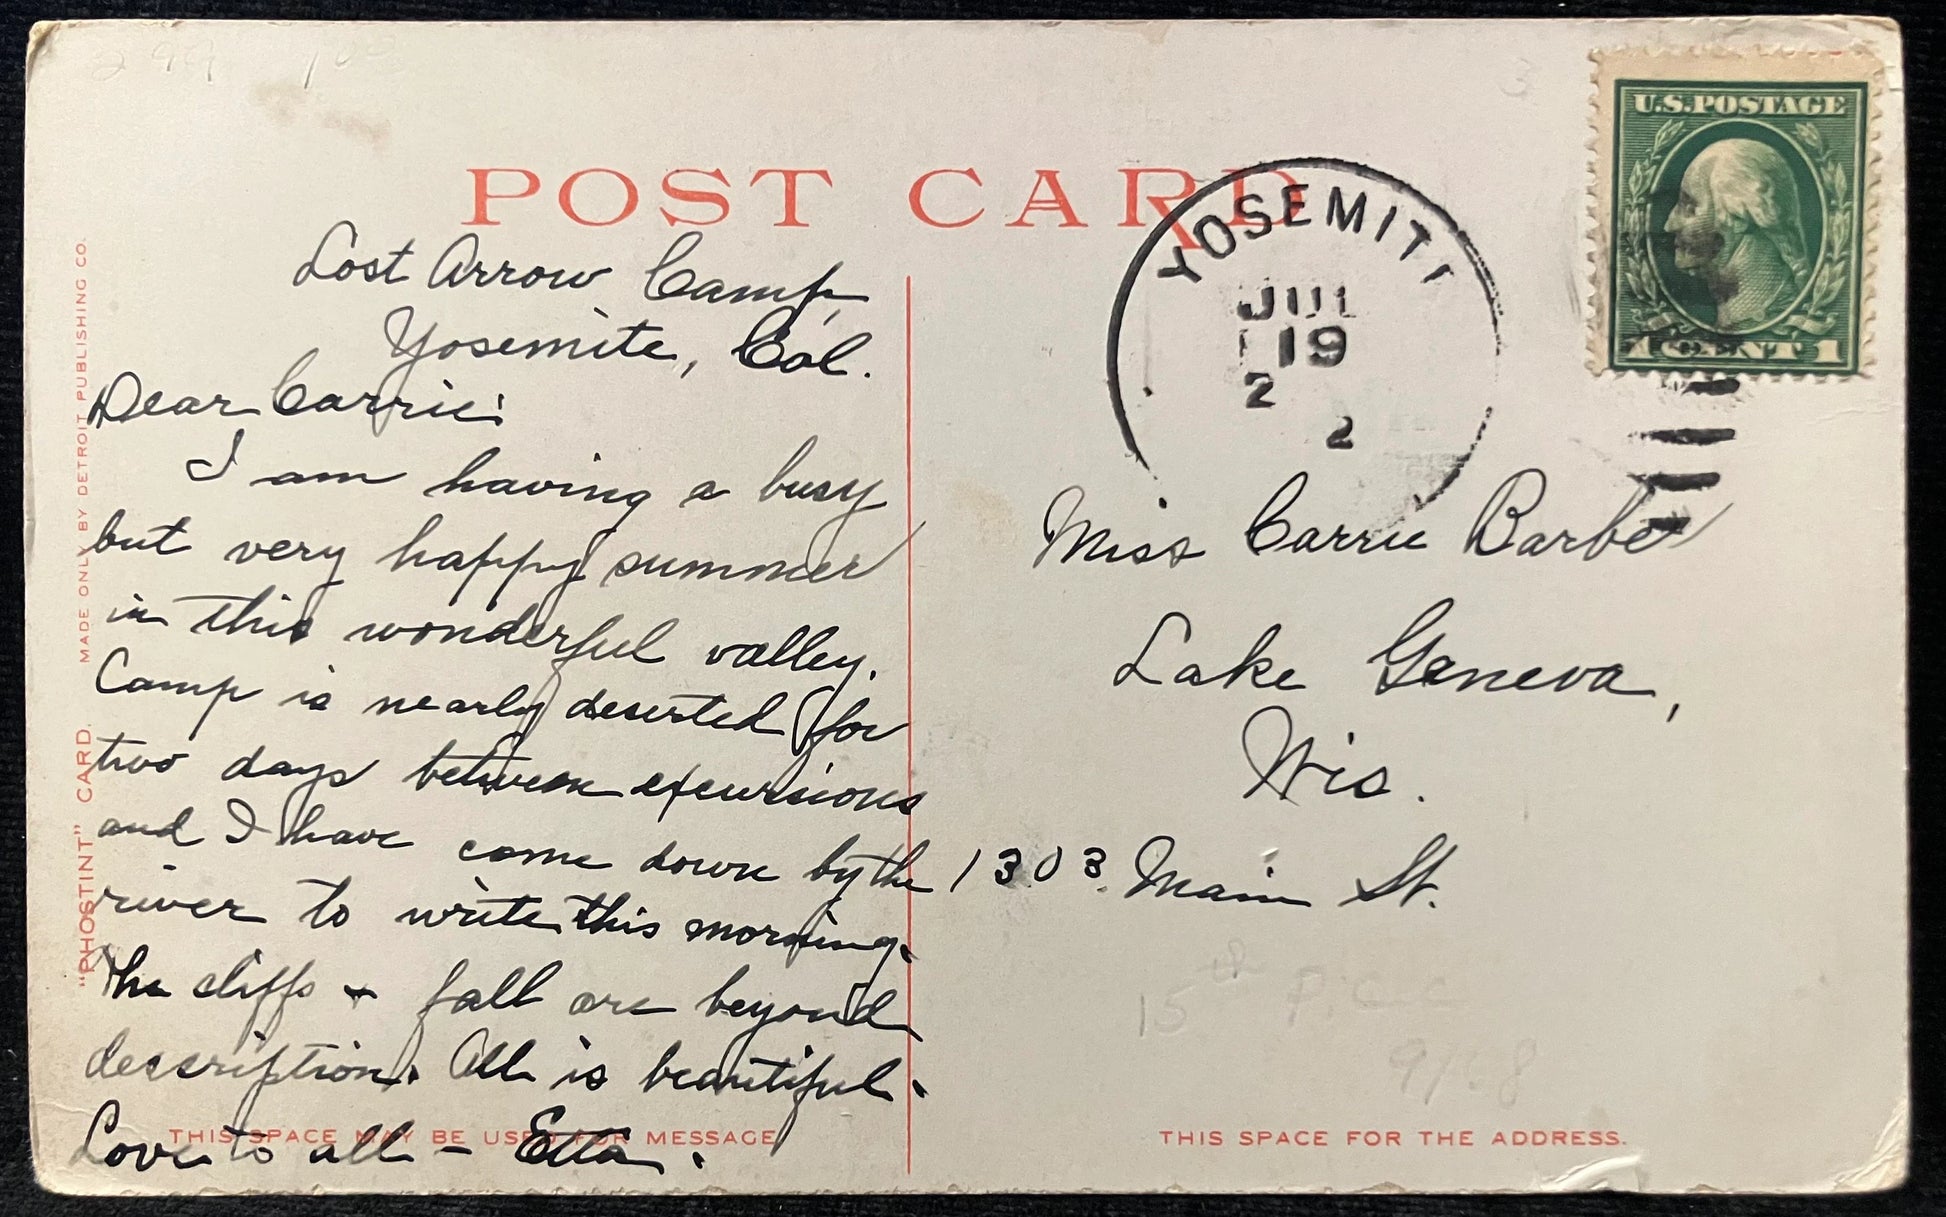 POST CARD
Lost Arrow Camp,
Yosemite, Cal.
Dear Carrie:
I am having a busy
but very happy summer
in this wonderful valley.
Camp is nearly deserted for
two days between excursions
and I have come down by the
river to write this morning.
The cliffs + fall are beyond
description. All is beautiful.
Love to all - Etta.
THIS SPACE MAY BE USED FOR MESSAGE
"PHOSTINT" CARD. MADE ONLY BY DETROIT PUBLISHING CO.
YOSEMIT
JUL
19
2
2
U.S.POSTAGE
1 CENT 1
Miss Carrie Barber
Lake Geneva,
Wis.
1303 Main St.
15th
THIS SPACE FOR THE ADDRESS.